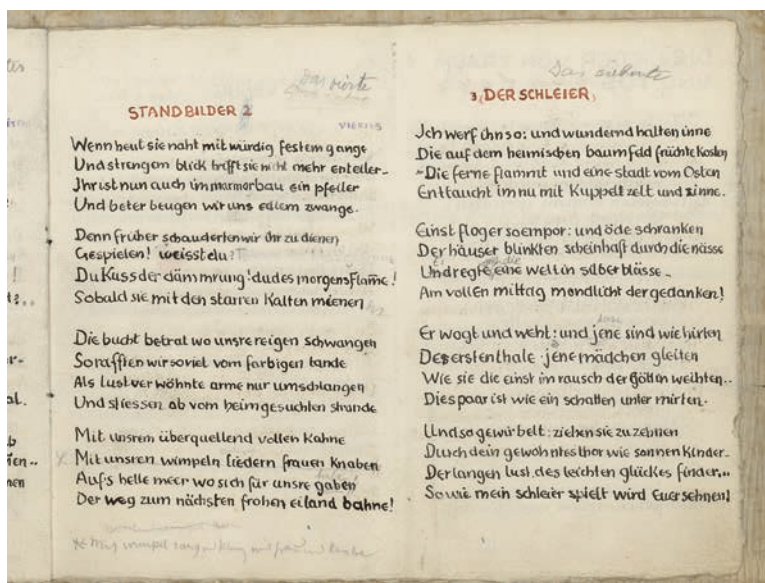 Das vierte
STANDBILDER 2
VIERTES
Wenn heut sie naht mit würdig festem gange
Und strengem blick trifft sie nicht mehr enteiler_
Ihr ist nun auch im marmorbau ein pfeiler
Und beter beugen wir uns edlem zwange.
Denn früher schauderten wir ihr zu dienen
Gespielen! weisst du?
Du Kuss der dämmrung! du des morgens Flame!
Sobald sie mit den starren Kalten mienen
Die bucht betrat wo unsre reigen schwangen
So rafften wir soviel vom farbigen tande
Als lustverwöhnte arme nur umschlangen
Und stiessen ab vom heimgesuchten strande
Mit unsrem überquellend vollen Kahne
Mit unsren wimpeln liedern frauen Knaben
Aufs helle meer wo sich für unsre gaben
Der weg zum nächsten frohen eiland bahne!
Das siebente
3. DER SCHLEIER
Ich werf ihn so: und wundernd halten inne
Die auf dem heimischen baumfeld früchte Kosten
Die ferne flammt und eine stadt vom Osten
Enttaucht im nu mit Kuppel zelt und zinne.
Einst flog er so empor: und öde schranken
Der häuser blinkten scheinhaft durch die nässe
Und regte eine welt in silberblässe_
Am vollen mittag mondlicht der gedanken!
Er wogt und weht: und jene sind wie hirten
Des ersten thale · jene mädchen gleiten
Wie sie die einst im rausch der Göttin weihten..
Dies paar ist wie ein schatten unter mirten.
Und so gewirbelt: ziehen sie zu zehnen
Durch dein gewohntes thor wie sonnenkinder_
Der langen lust, des leichten glückes finder...
So wie mein schleier spielt wird Euer sehnen!